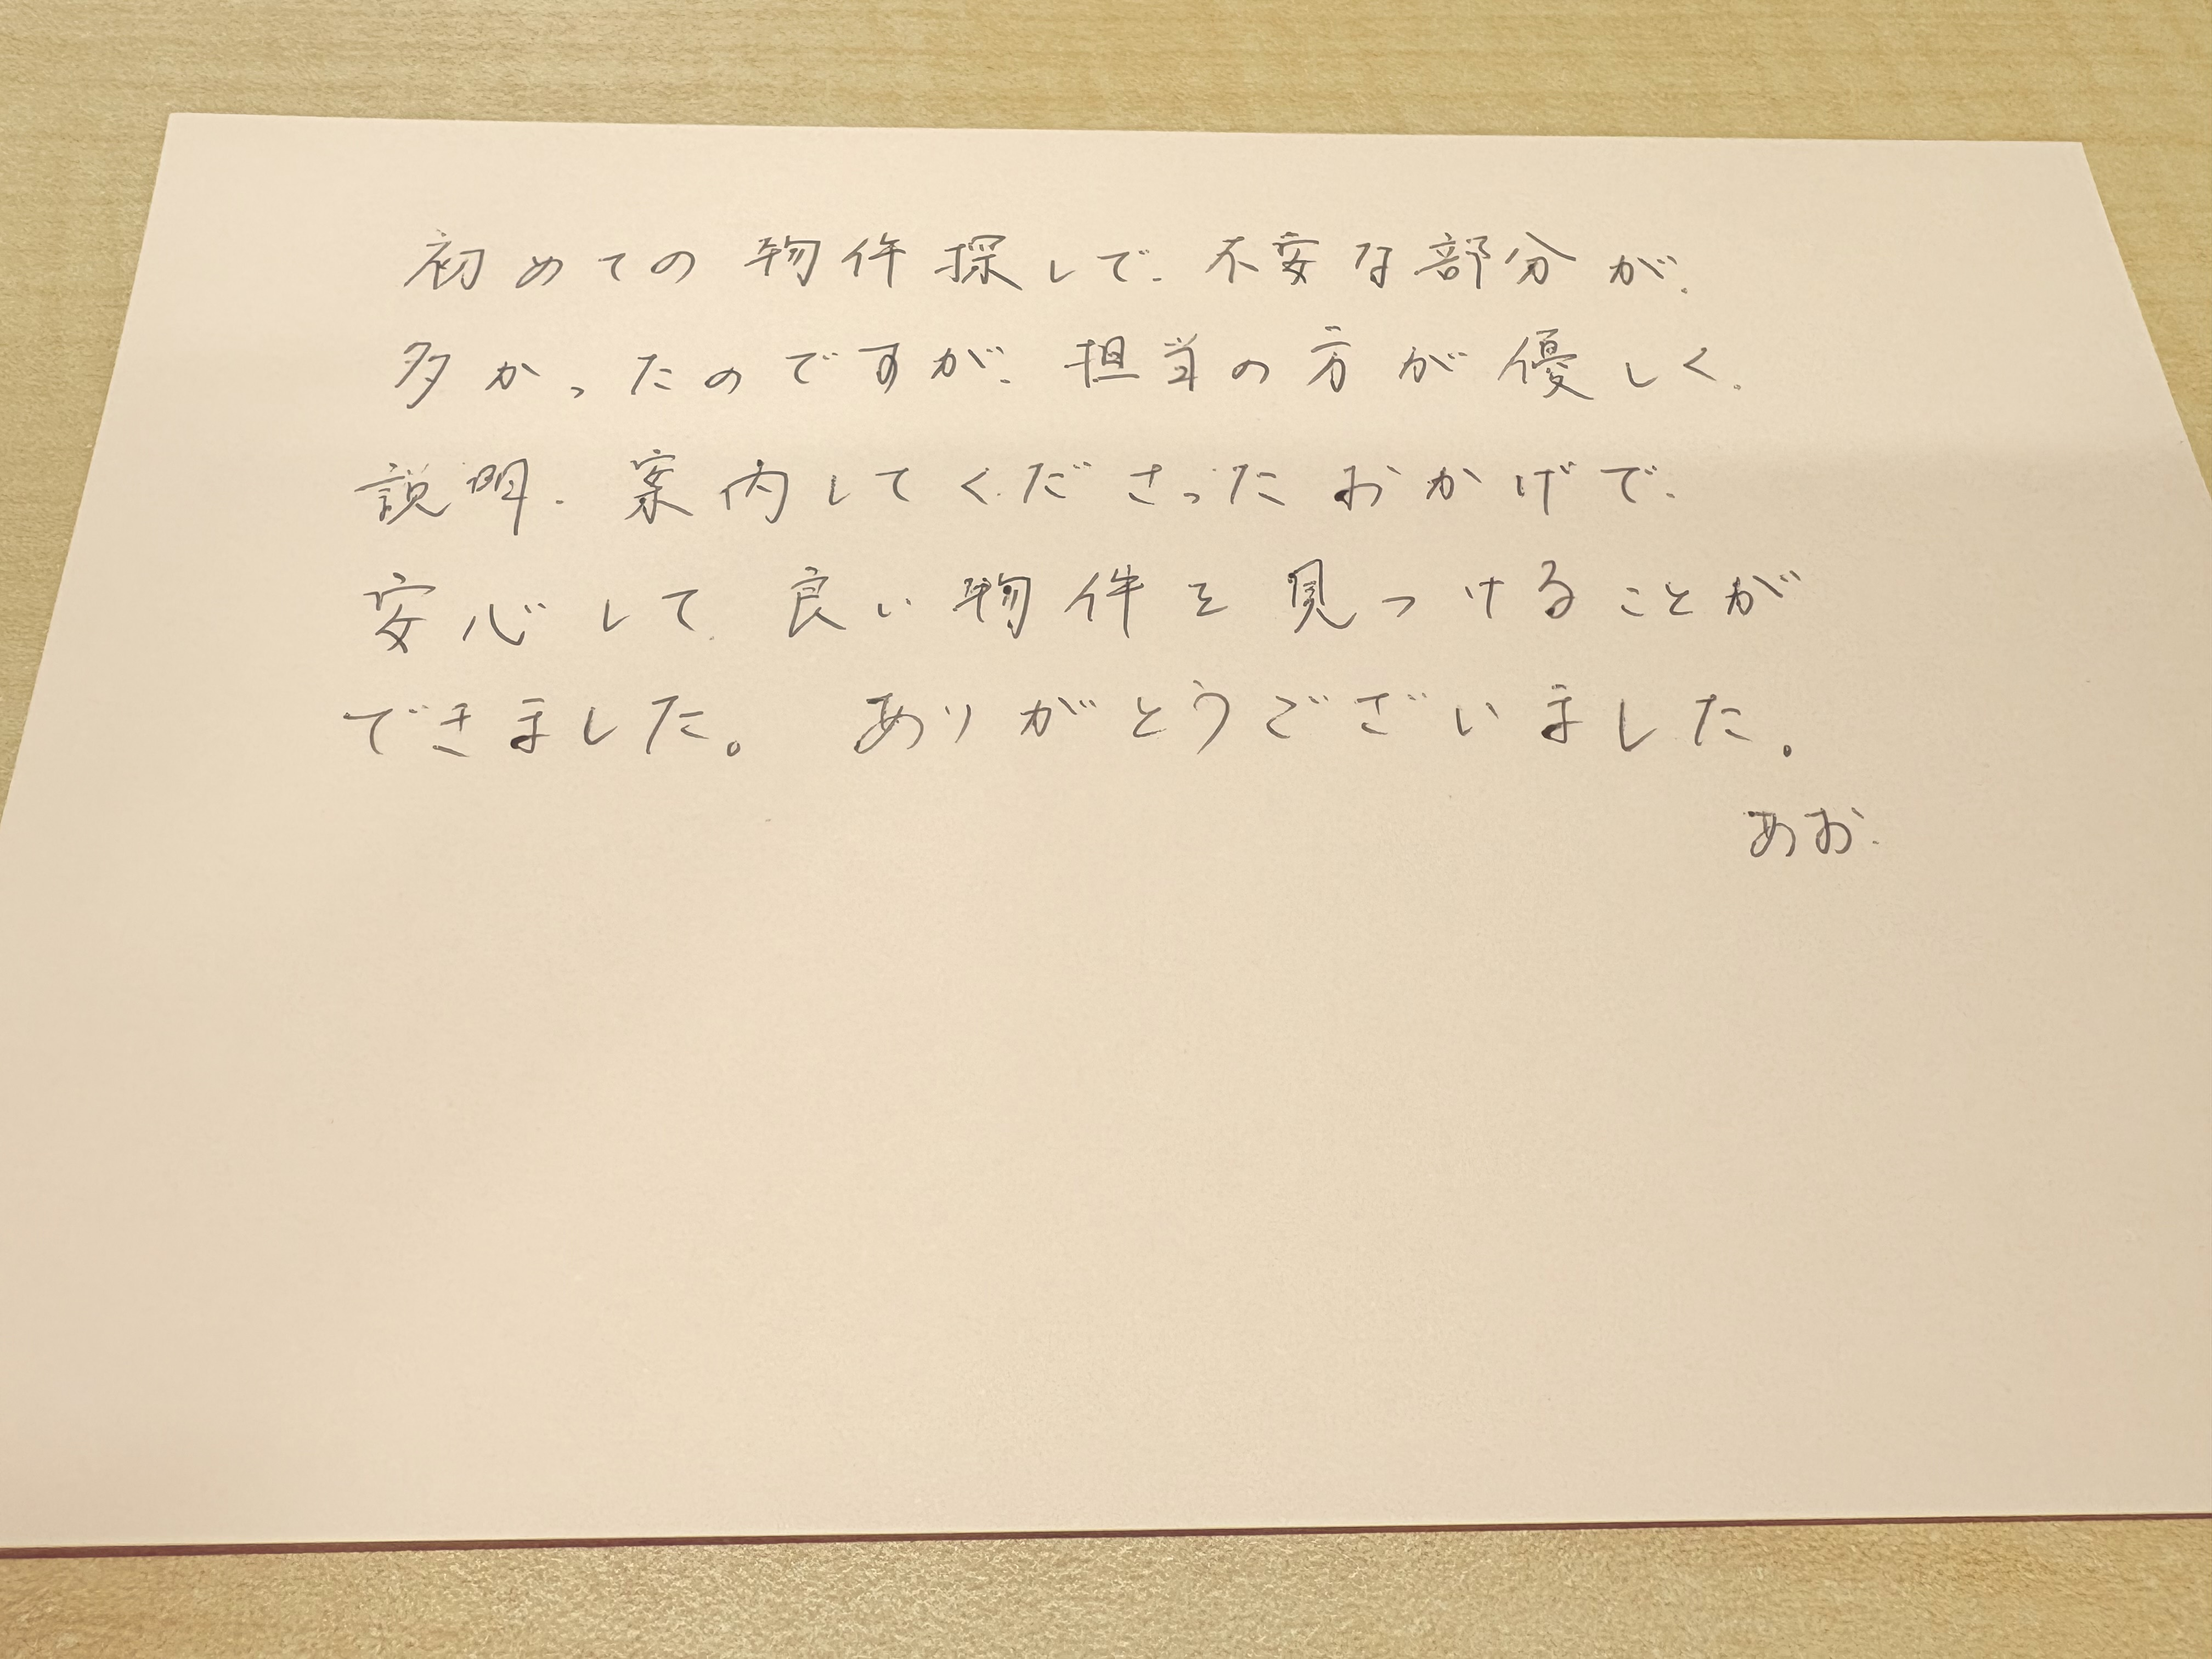 初めての物件探しで、不安な部分が、
多かったのですが、担当の方が優しく、
説明、案内してくださったおかげで、
安心して良い物件を見つけることが
できました。 ありがとうございました。
あお.